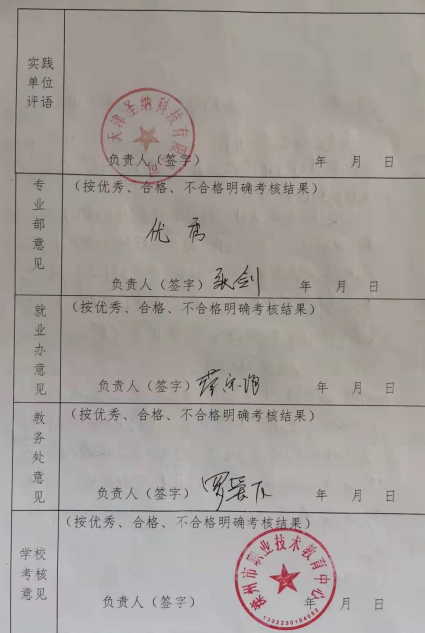 实践
单位
评语
天津圣纳科技有限公司
负责人（签字） 年 月 日
专业部意见
（按优秀、合格、不合格明确考核结果）
优秀
负责人（签字） 年 月 日
就业办意见
（按优秀、合格、不合格明确考核结果）
负责人（签字） 年 月 日
教务处意见
（按优秀、合格、不合格明确考核结果）
负责人（签字） 年 月 日
学校
考核
意见
（按优秀、合格、不合格明确考核结果）
市职业技术教育中心
负责人（签字） 年 月 日